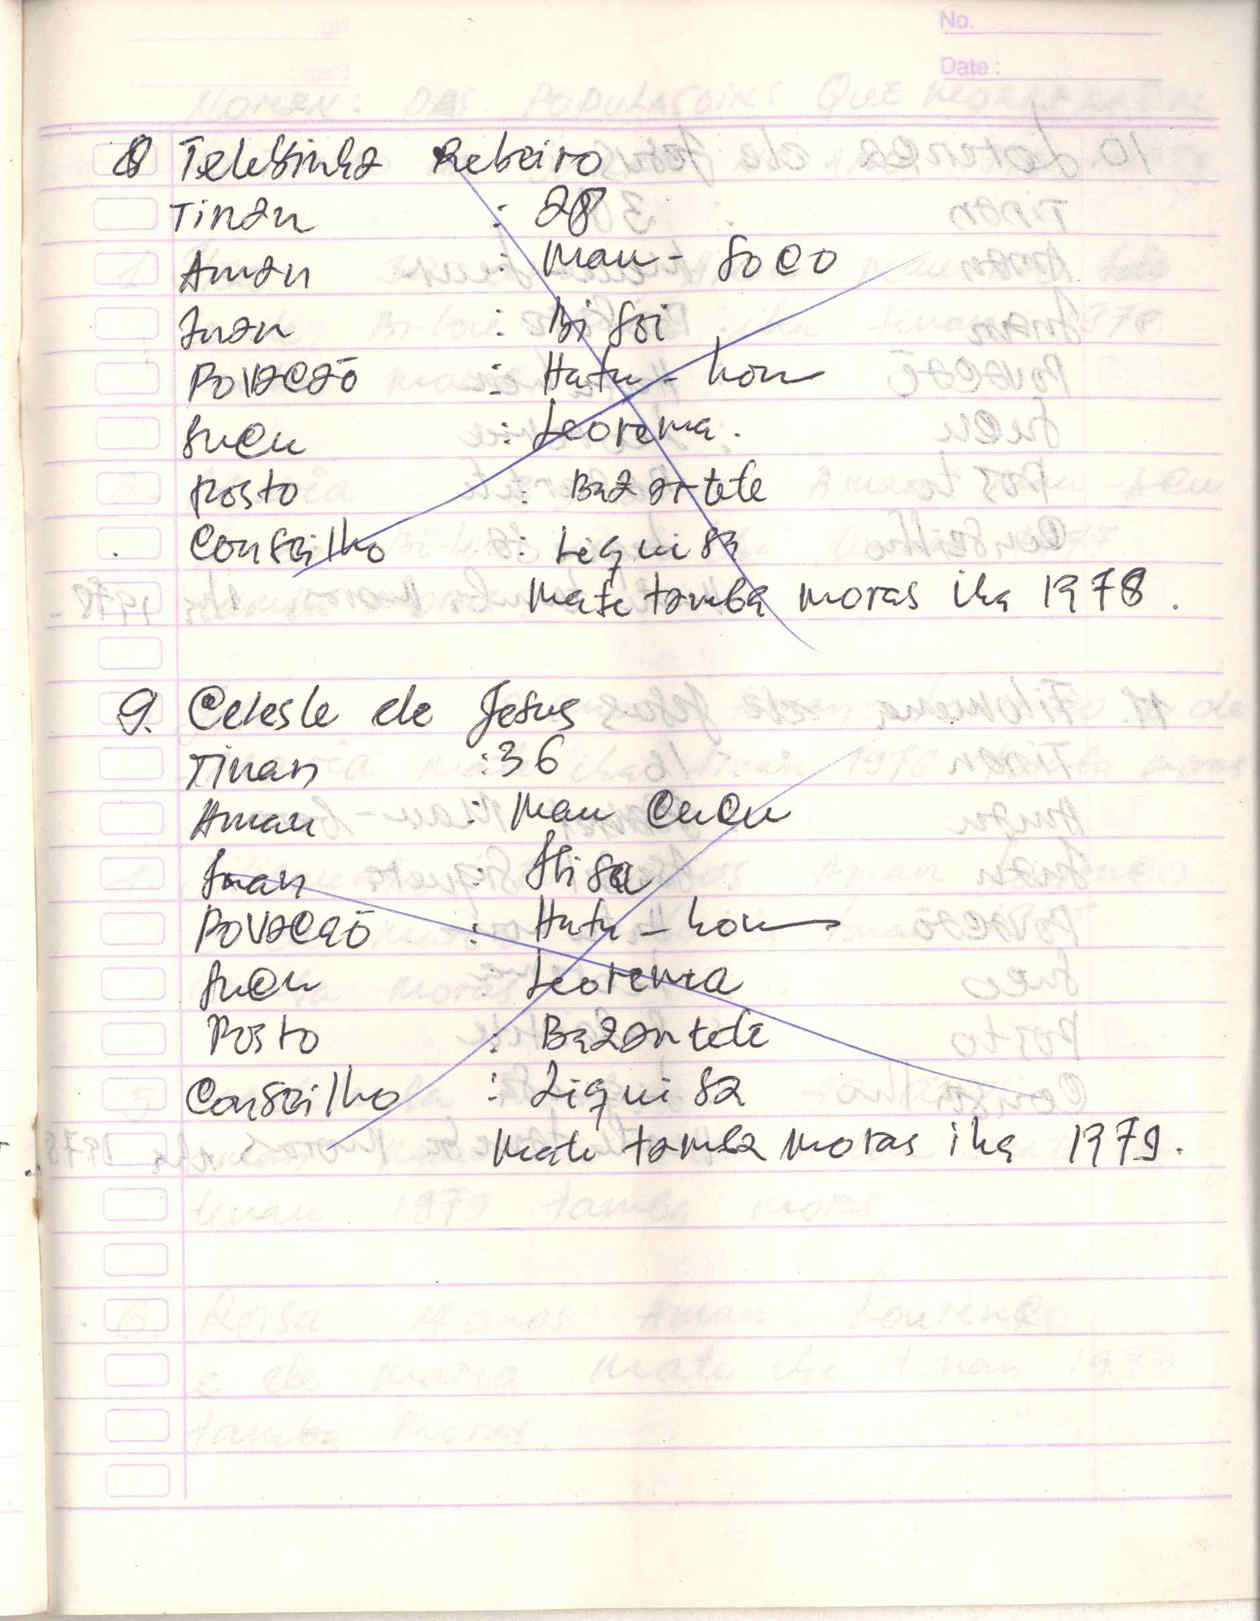 No.
Date:
8 Telessinha Rebeiro
Tinan : 28
Aman : Mau - Soco
Inan : Bi Soi
Povacão : Hatu - hou
Sucu : Leorema.
Posto : Bazartete
Conseilho : Liquisa
Mate tamba moras iha 1978.
9. Celeste de Jesus
Tinan : 36
Aman : Mau Cucu
Inan : Elisa
Povacão : Hatu - hou
Sucu : Leorema
Posto : Bazartete
Conseilho : Liquisa
Mate tamba moras iha 1979.